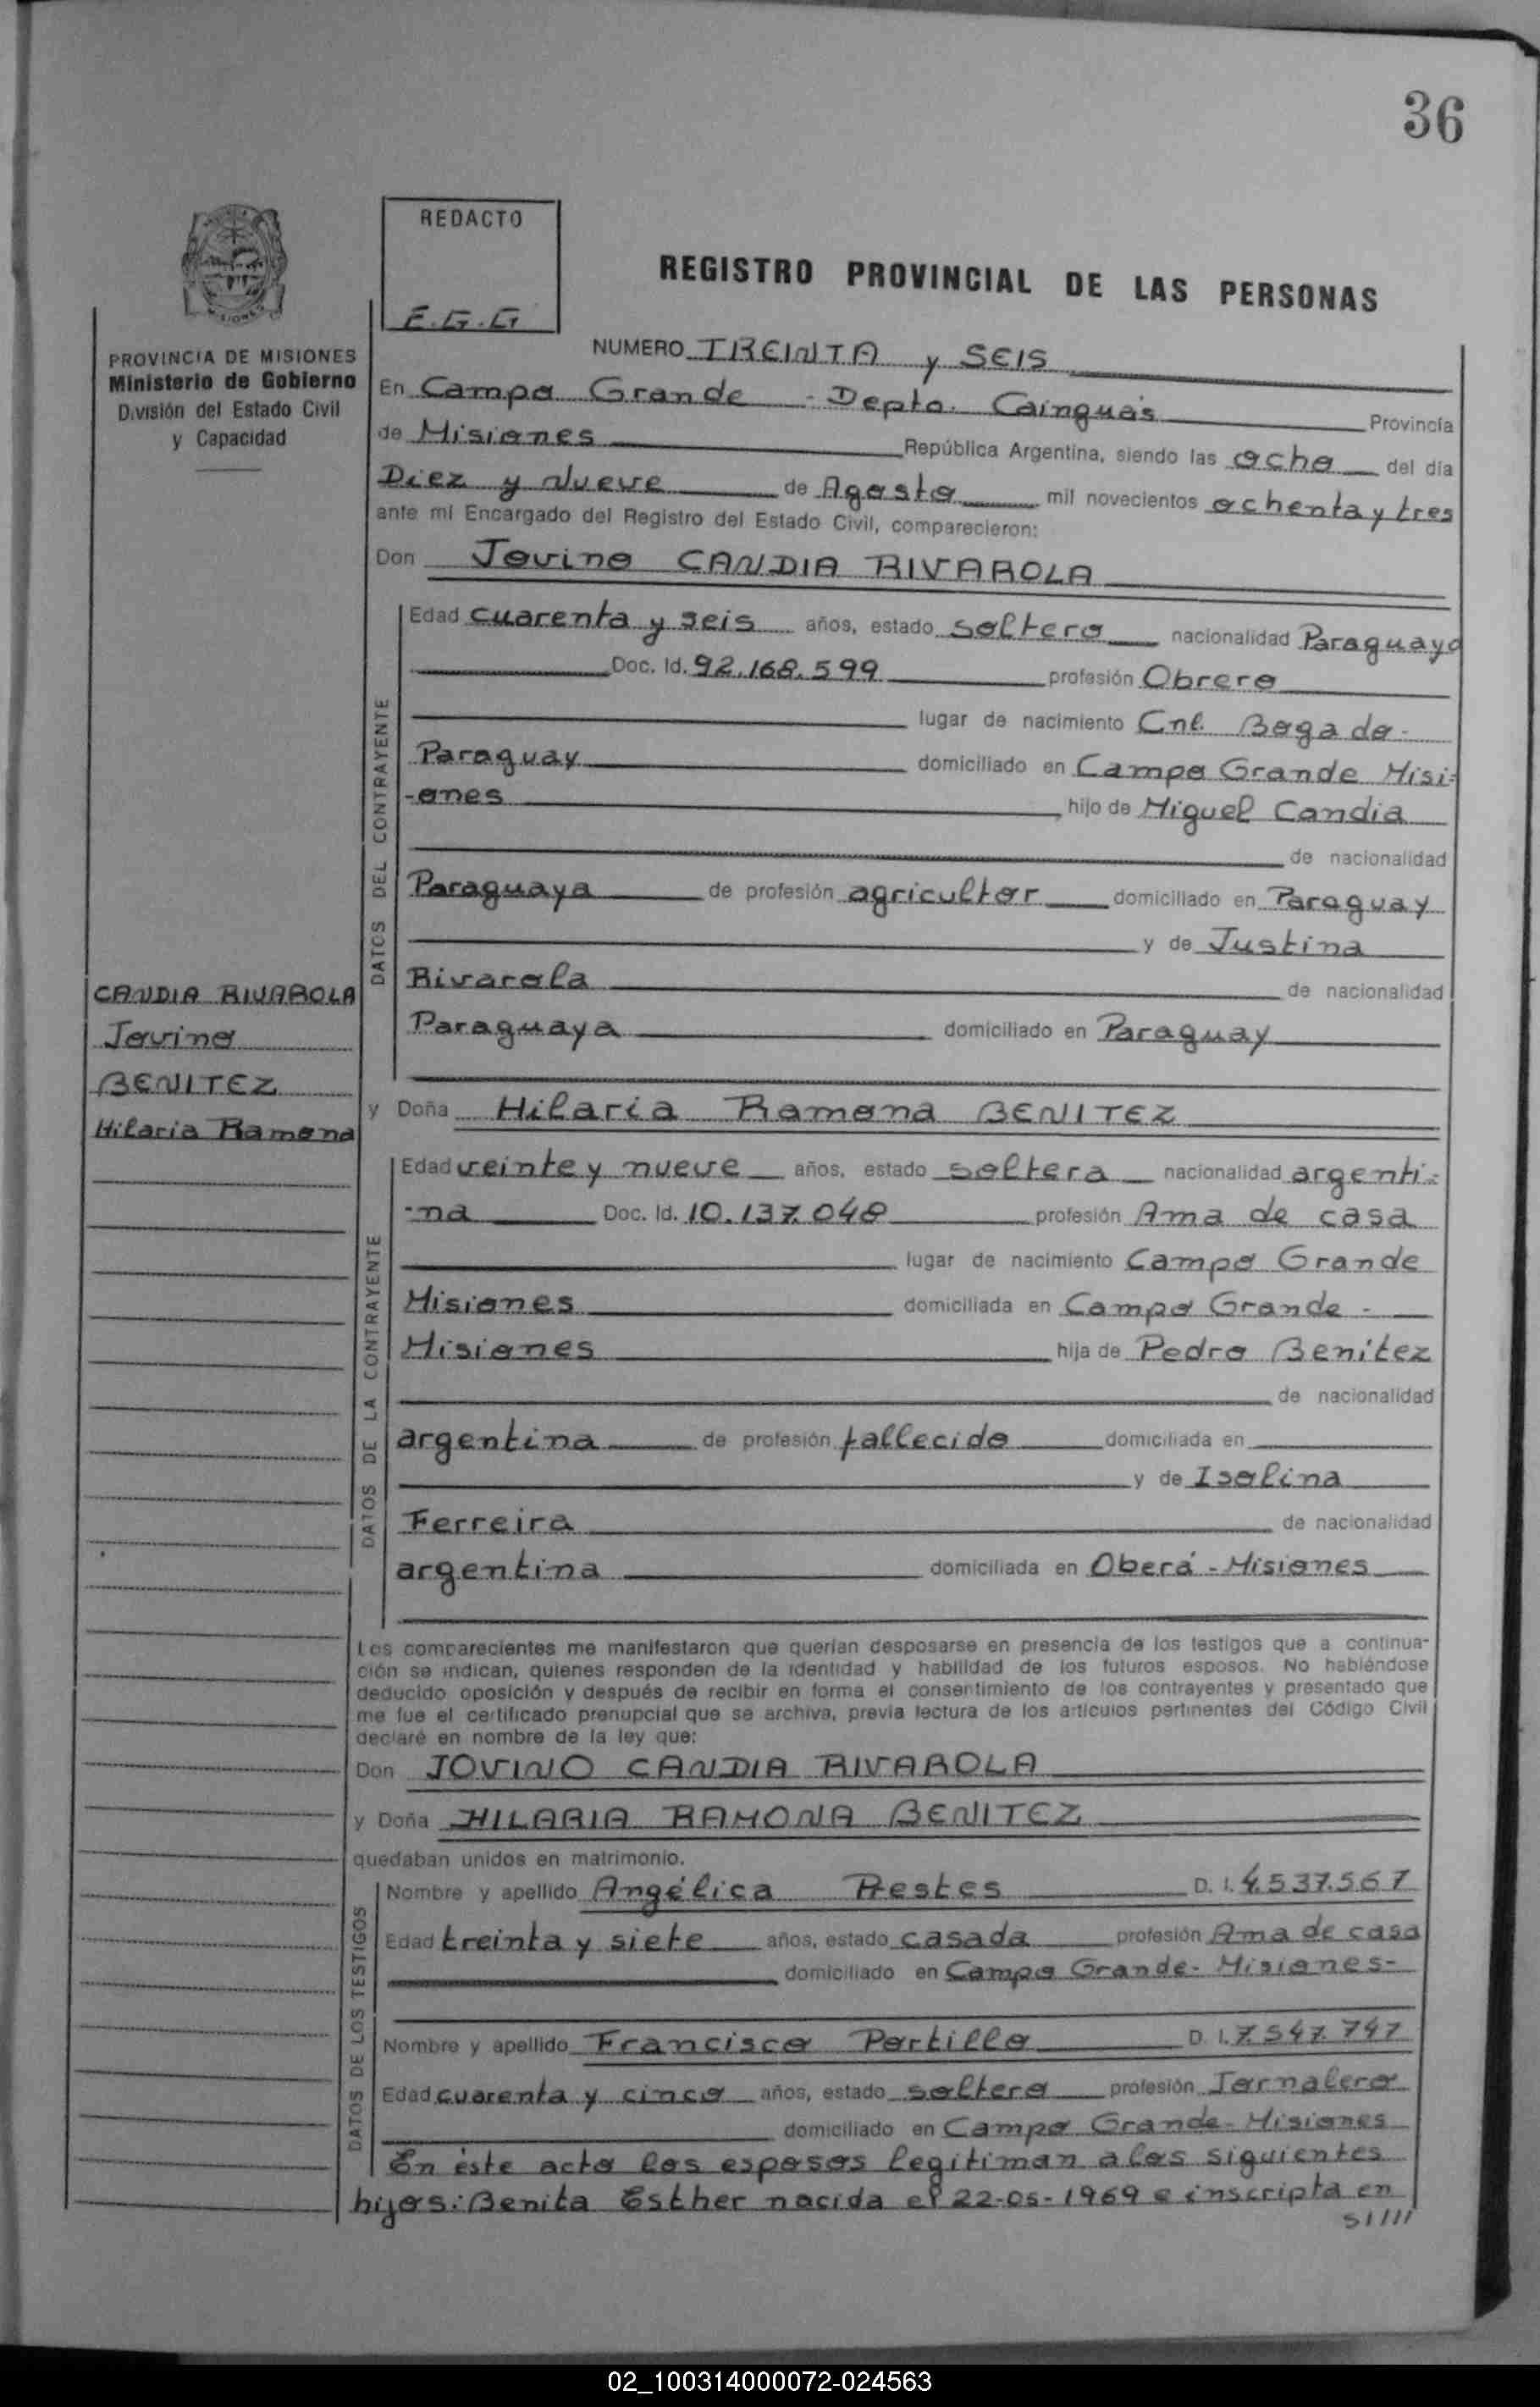 36
REDACTO
E.G.G
REGISTRO PROVINCIAL DE LAS PERSONAS
MISIONES
PROVINCIA DE MISIONES
Ministerio de Gobierno
División del Estado Civil
y Capacidad
NUMERO TREINTA y SEIS
En Campo Grande - Depto. Cainguás Provincia
de Misiones República Argentina, siendo las ocho del día
Diez y Nueve de Agosto mil novecientos ochenta y tres
ante mi Encargado del Registro del Estado Civil, comparecieron:
Don Jovino CANDIA RIVAROLA
DATOS DEL CONTRAYENTE
Edad cuarenta y seis años, estado soltero nacionalidad Paraguaya
Doc. Id. 92.168.599 profesión Obrero
lugar de nacimiento Cnl. Bogado-
Paraguay domiciliado en Campo Grande Misi-
-ones hijo de Miguel Candia
de nacionalidad
Paraguaya de profesión agricultor domiciliado en Paraguay
y de Justina
Rivarola de nacionalidad
Paraguaya domiciliado en Paraguay
CANDIA RIVAROLA
Jovino
BENITEZ
Hilaria Ramona
y Doña Hilaria Ramona BENITEZ
DATOS DE LA CONTRAYENTE
Edad veinte y nueve años, estado soltera nacionalidad argenti-
-na Doc. Id. 10.137.048 profesión Ama de casa
lugar de nacimiento Campo Grande
Misiones domiciliada en Campo Grande -
Misiones hija de Pedro Benítez
de nacionalidad
argentina de profesión fallecido domiciliada en
y de Isolina
Ferreira de nacionalidad
argentina domiciliada en Oberá - Misiones
Los comparecientes me manifestaron que querían desposarse en presencia de los testigos que a continua-
ción se indican, quienes responden de la identidad y habilidad de los futuros esposos. No habiéndose
deducido oposición y después de recibir en forma el consentimiento de los contrayentes y presentado que
me fue el certificado prenupcial que se archiva, previa lectura de los artículos pertinentes del Código Civil
declaré en nombre de la ley que:
Don JOVINO CANDIA RIVAROLA
y Doña HILARIA RAMONA BENITEZ
quedaban unidos en matrimonio.
DATOS DE LOS TESTIGOS
Nombre y apellido Angélica Prestes D. I. 4.537.567
Edad treinta y siete años, estado casada profesión Ama de casa
domiciliado en Campo Grande- Misiones-
Nombre y apellido Francisco Portillo D. I. 7.547.747
Edad cuarenta y cinco años, estado soltero profesión Jornalero
domiciliado en Campo Grande- Misiones
En éste acto los esposos legitiman a los siguientes
hijos: Benita Esther nacida el 22-05-1969 e inscripta en
S/////
02_100314000072-024563